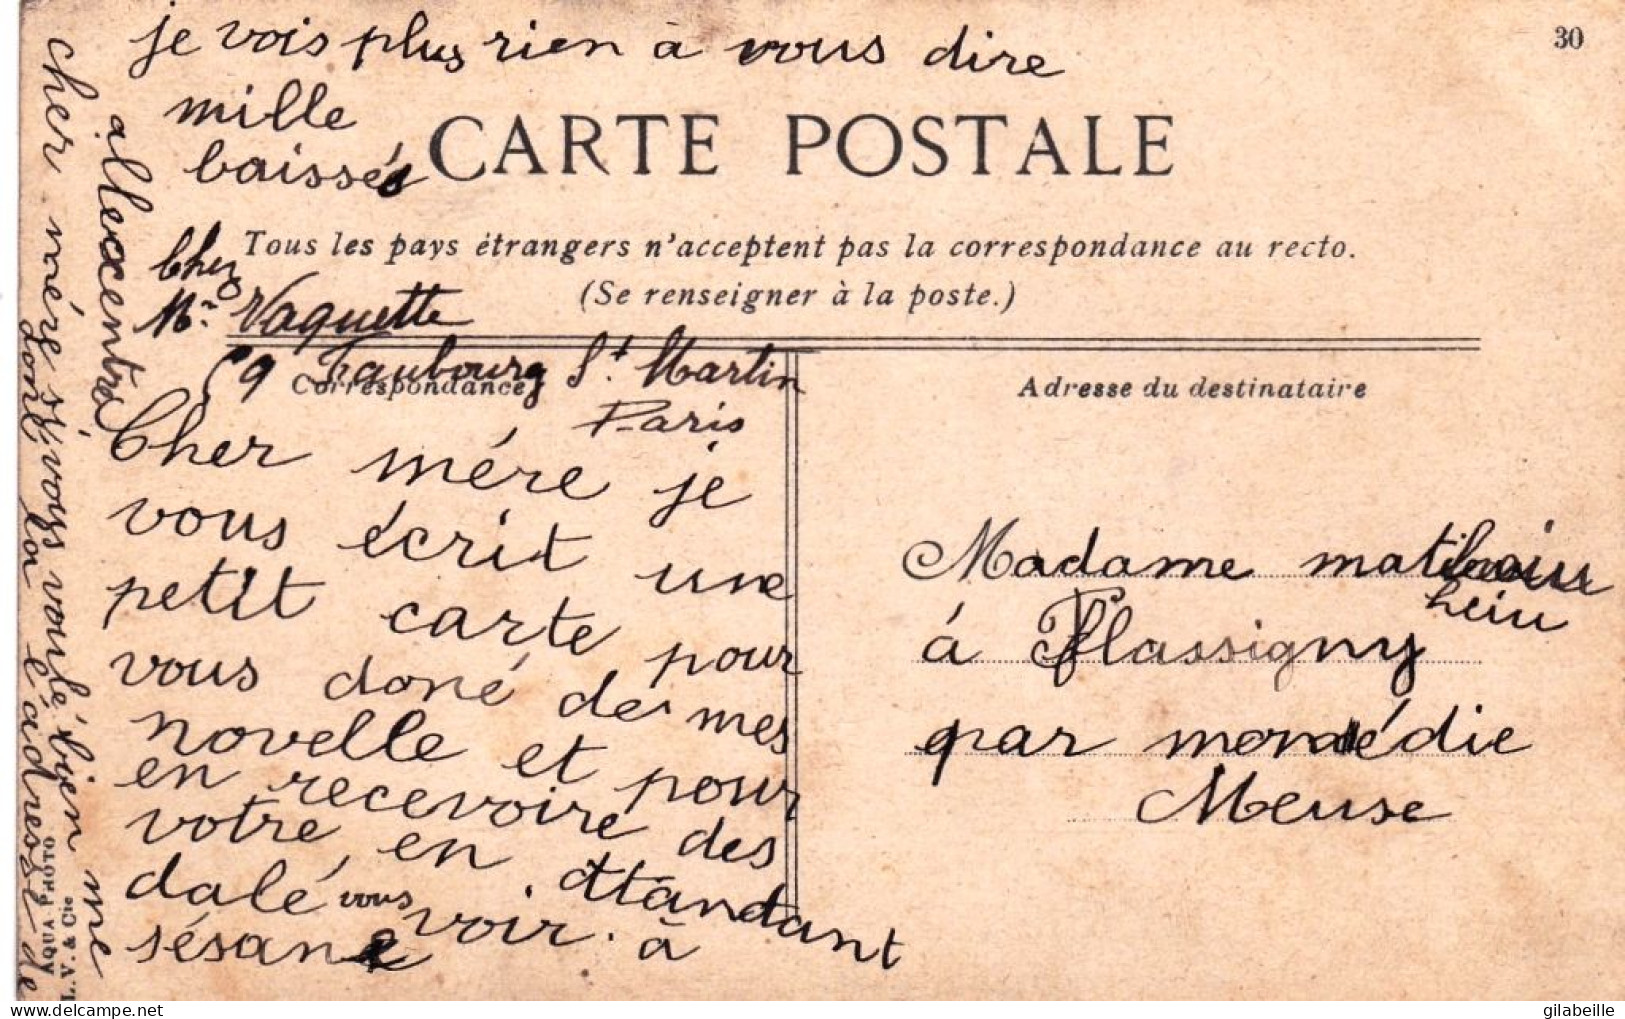 je vois plus rien à vous dire
30
mille
baissés
CARTE POSTALE
Tous les pays étrangers n'acceptent pas la correspondance au recto.
(Se renseigner à la poste.)
Chez
Mr. Vaquette
59 Faubourg St. Martin
Paris
Correspondance
Adresse du destinataire
Cher mére je
vous écrit une
petit carte pour
vous doné de mes
novelle et pour
en recevoire des
votre, en attandant
dalé vous voir. à
sésane
allexentré
cher mére si vous voulé bien me
doné la l'adresse de
Madame
heiu
á Flassigny
par monédie
Meuse
AQUA PHOTO
L. V. & Cie
gilabeille